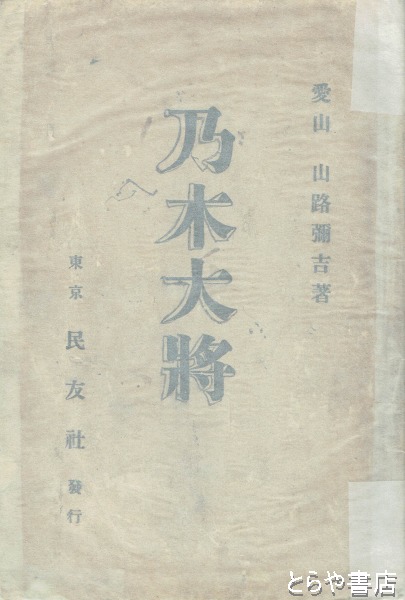 愛山 山路彌吉著
乃木大將
東京 民友社 發行
とらや書店